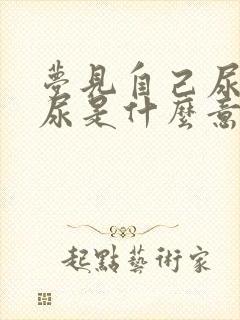 夢見自己尿
尿是什麼意
起點藝術家